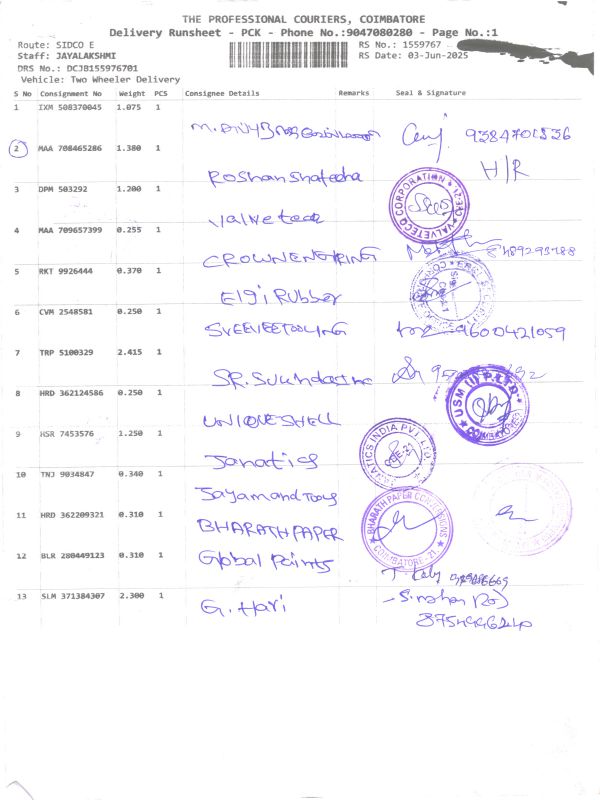 THE PROFESSIONAL COURIERS, COIMBATORE
Delivery Runsheet - PCK - Phone No.:9047080280 - Page No.:1
Route: SIDCO E RS No.: 1559767
Staff: JAYALAKSHMI RS Date: 03-Jun-2025
DRS No.: DCJB155976701
Vehicle: Two Wheeler Delivery
S No Consignment No Weight PCS Consignee Details Remarks Seal & Signature
1 IXM 508370045 1.075 1
9384701536
2 MAA 708465286 1.380 1
Roshan H/R
3 DPM 503292 1.200 1
Valveteca
VALVETECQ CORPORATION
4 MAA 709657399 0.255 1
CROWN
5 RKT 9926444 0.370 1
Elgi Rubber
6 CVM 2548581 0.250 1
9600421059
7 TRP 5100329 2.415 1
SR.
8 HRD 362124586 0.250 1
UNIONESHELL
USM (I) P. LTD
COIMBATORE
9 HSR 7453576 1.250 1
Janatics
JANATICS INDIA PVT. LTD
CBE-21
10 TNJ 9034847 0.340 1
Jayamand Tools
11 HRD 362209321 0.310 1
BHARATH PAPER
BHARATH PAPER CONVERSIONS
COIMBATORE-21.
12 BLR 280449123 0.310 1
Global Paints
13 SLM 371384307 2.300 1
G. Hari